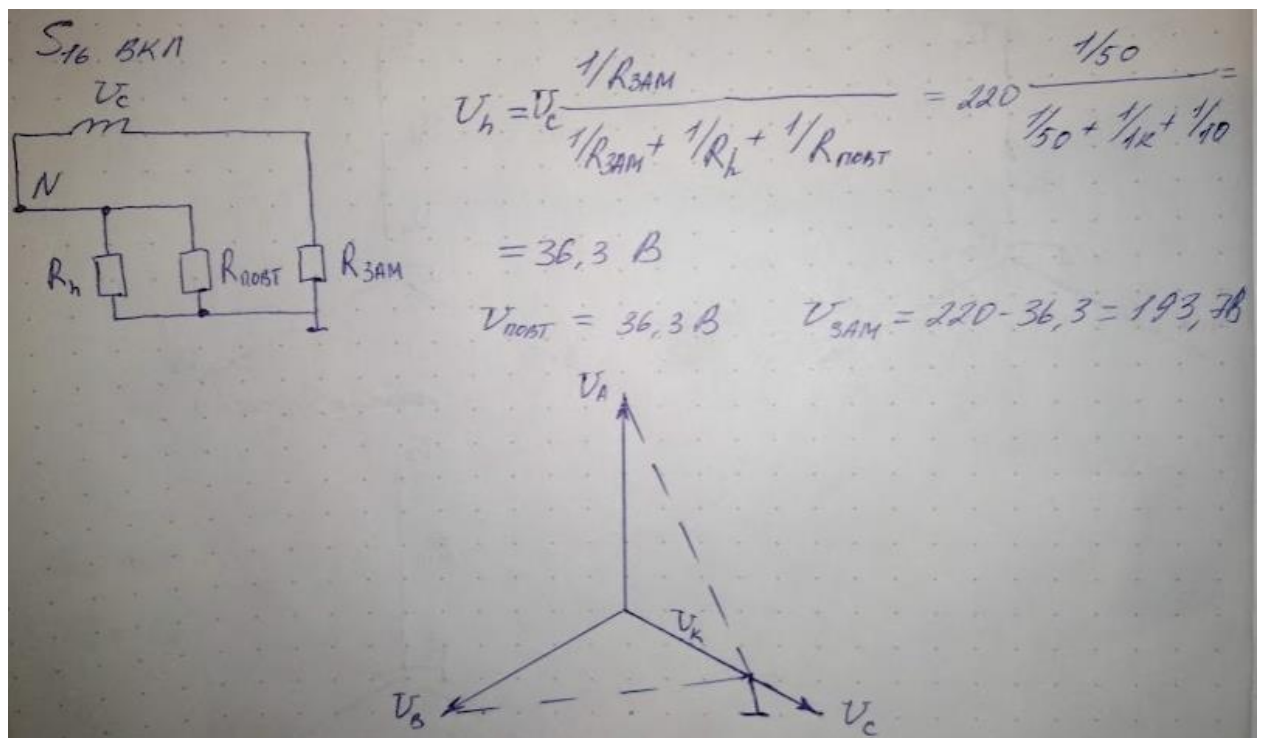 S₁₆ ВКЛ
U_c
N
R_h
R_ПОВТ
R_ЗАМ
U_h = U_c (1/R_ЗАМ) / (1/R_ЗАМ + 1/R_h + 1/R_ПОВТ) = 220 (1/50) / (1/50 + 1/1к + 1/10) =
= 36,3 В
U_ПОВТ = 36,3 В U_ЗАМ = 220 - 36,3 = 193,7В
U_A
U_к
U_B
U_C